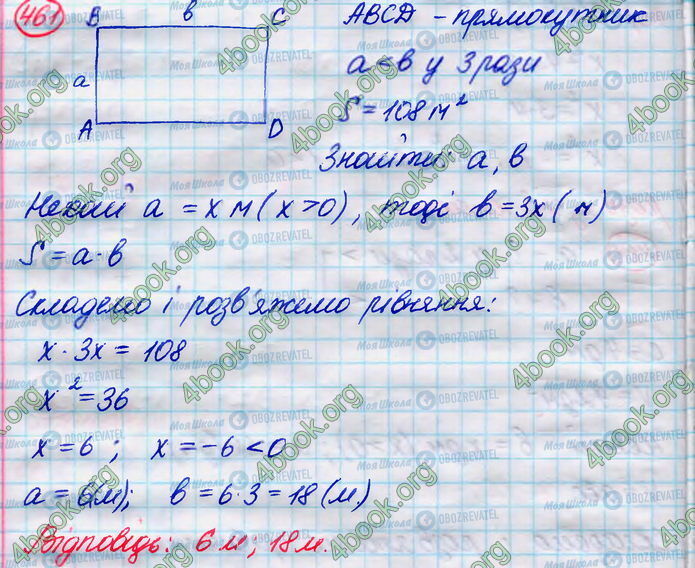 461
B в C
a
A D
ABCD – прямокутник
a < в у 3 рази
S = 108 м²
Знайти: a, в
Нехай a = x м (x > 0), тоді в = 3x (м)
S = a · в
Складемо і розв'яжемо рівняння:
x · 3x = 108
x² = 36
x = 6 ; x = –6 < 0
a = 6(м); в = 6 · 3 = 18 (м)
Відповідь: 6 м ; 18 м.
4book.org
Моя Школа
OBOZREVATEL